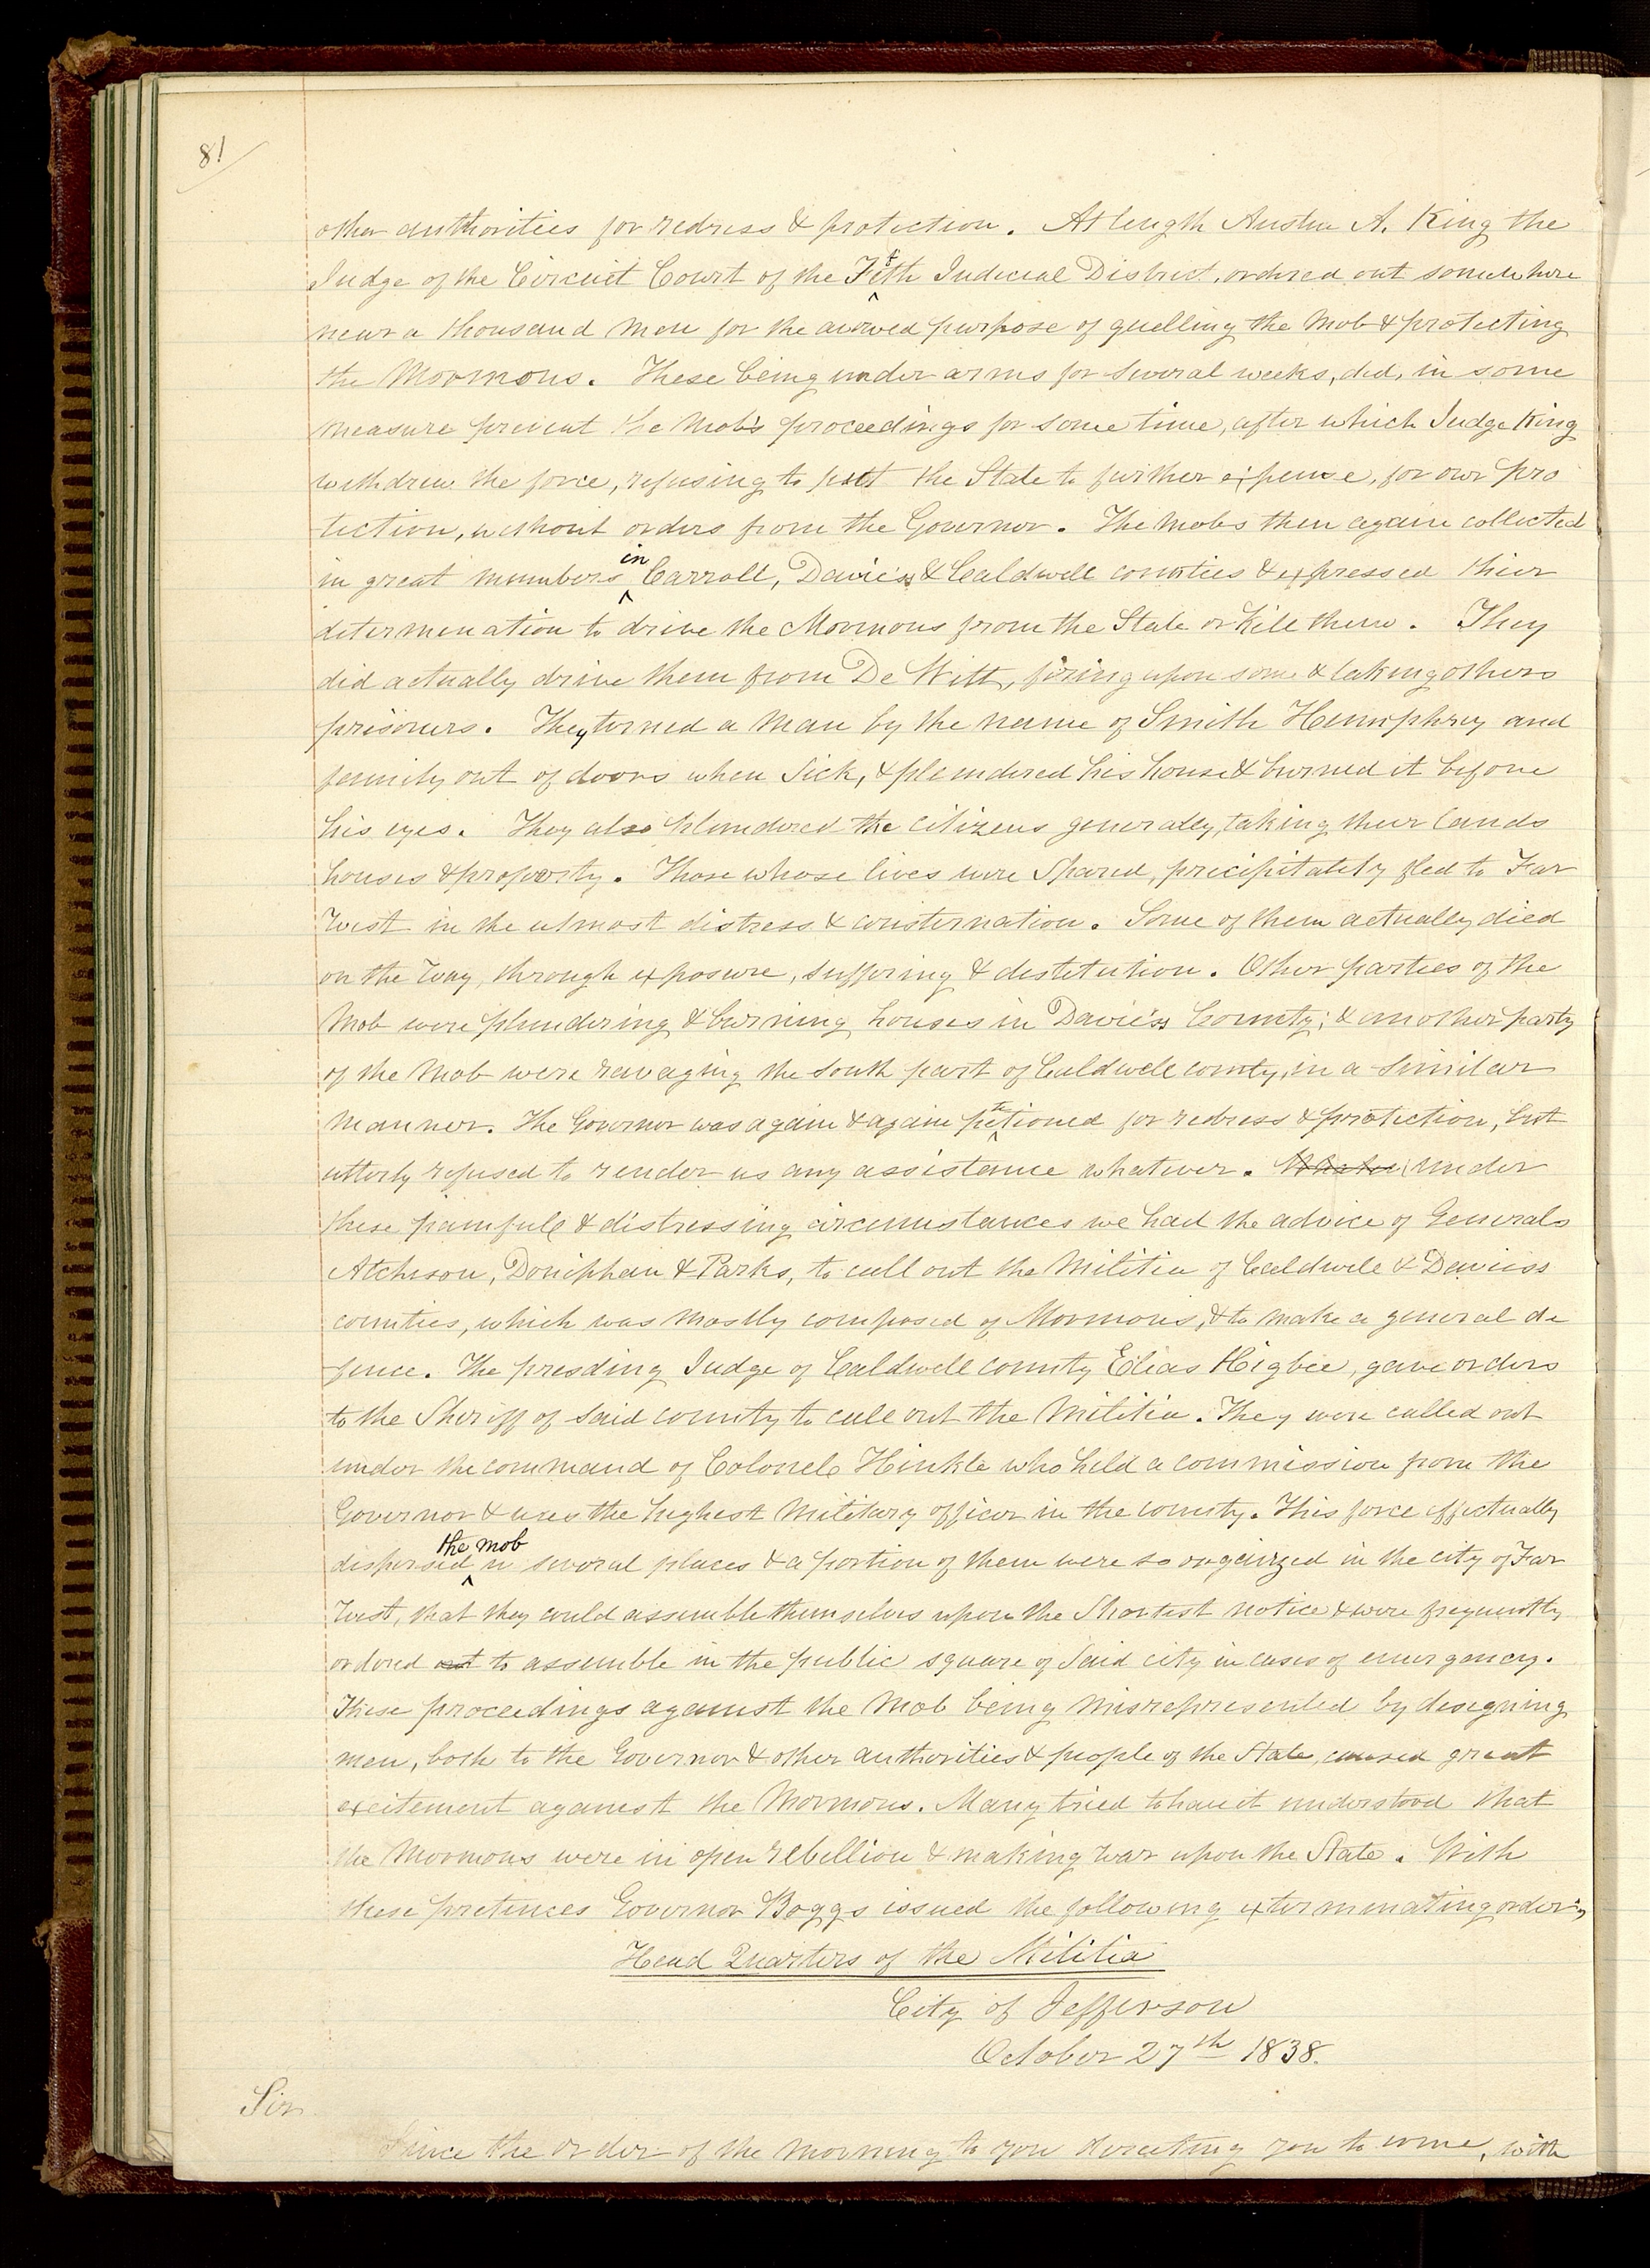 81
other authorities for redress & protection. At length Austin A. King the
Judge of the Circuit Court of the Fifth Judicial District, ordered out somewhere
near a thousand men for the avowed purpose of quelling the Mob & protecting
the Mormons. These being under arms for several weeks, did, in some
measure prevent the Mob's proceedings for some time, after which Judge King
withdrew the force, refusing to put the State to further expense, for our pro
tection, without orders from the Governor. The Mobs then again collected
in great numbers in Carroll, Daviess & Caldwell counties & expressed their
determination to drive the Mormons from the State or kill them. They
did actually drive them from De Witt, firing upon some & taking others
prisoners. They turned a man by the name of Smith Humphrey and
family out of doors when Sick, & plundered his house & burned it before
his eyes. They also plundered the citizens generally, taking their lands
houses & property. Those whose lives were Spared, precipitately fled to Far
West in the utmost distress & consternation. Some of them actually died
on the way, through exposure, suffering & destitution. Other parties of the
Mob were plundering & burning houses in Daviess County; & another party
of the Mob were ravaging the South part of Caldwell county, in a similar
manner. The Governor was again & again petetioned for redress & protection, but
utterly refused to render us any assistance whatever. Under
these painfull & distressing circumstances we had the advice of Generals
Atchison, Doniphan & Parks, to call out the Militia of Caldwell & Daviess
counties, which was mostly composed of Mormons, & to make a general de
fence. The presding Judge of Caldwell county Elias Higbee, gave orders
to the Sheriff of said county to call out the Militia. They were called out
under the command of Colonel Hinkle who held a commission from the
Governor & was the highest Military officer in the county. This force effectually
dispersed the mob in several places & a portion of them were so organized in the city of Far
West, that they could assemble themselves upon the Shortest notice & were frequently
ordered out to assemble in the public square of Said city in cases of emergency.
These proceedings against the Mob being misrepresented by designing
men, both to the Governor & other authorities & people of the State, caused great
excitement against the Mormons. Many tried to have it understood that
the Mormons were in open rebellion & making war upon the State. With
these pretences Governor Boggs issued the following exterminating order;
Head Quarters of the Militia
City of Jefferson
October 27th 1838.
Sir
Since the order of the morning to you directing you to come, with